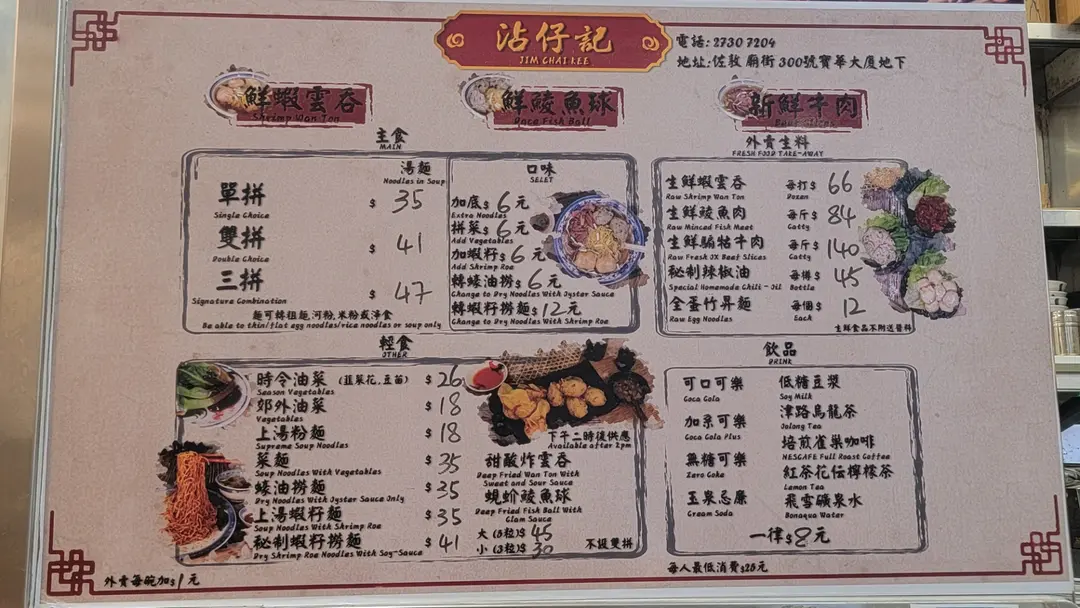 沾仔記
JIM CHAI KEE
電話: 2730 7204
地址: 佐敦 廟街 300號寶華大廈地下
鮮蝦雲吞
Shrimp Wan Ton
鮮鯪魚球
Dace Fish Ball
新鮮牛肉
主食
MAIN
湯麵
Noodles in Soup
單拼 $ 35
Single Choice
雙拼 $ 41
Double Choice
三拼 $ 47
Signature Combination
麵可轉粗麵,河粉,米粉或淨食
Be able to thin/flat egg noodles/rice noodles or soup only
口味
SELET
加底$ 6元
Extra Noodles
拼菜$ 6元
Add Vegetables
加蝦籽$ 6元
Add Shrimp Roe
轉蠔油撈$ 6元
Change to Dry Noodles With Oyster Sauce
轉蝦籽撈麵$ 12元
Change to Dry Noodles With Shrimp Roe
外賣生料
FRESH FOOD TAKE-AWAY
生鮮蝦雲吞 每打$ 66
Raw Shrimp Wan Ton Dozen
生鮮鯪魚肉 每斤$ 84
Raw Minced Fish Meat Catty
生鮮騸牯牛肉 每斤$ 140
Raw Fresh OX Beef Slices Catty
秘制辣椒油 每樽$ 45
Special Homemade Chili - Oil Bottle
全蛋竹昇麵 每個$ 12
Raw Egg Noodles Each
生鮮食品不附送醬料
輕食
OTHER
時令油菜 (韮菜花,豆苗) $ 26
Season Vegetables
郊外油菜 $ 18
Vegetables
上湯粉麵 $ 18
Supreme Soup Noodles
菜麵 $ 35
Soup Noodles With Vegetables
蠔油撈麵 $ 35
Dry Noodles With Oyster Sauce Only
上湯蝦籽麵 $ 35
Soup Noodles With Shrimp Roe
秘制蝦籽撈麵 $ 41
Dry Shrimp Roe Noodles With Soy-Sauce
下午二時後供應
Available after 2pm
甜酸炸雲吞
Deep Fried Wan Ton With
Sweet and Sour Sauce
蜆蚧鯪魚球
Deep Fried Fish Ball With
Clam Sauce
大 (5粒)$ 45
小 (3粒)$ 30
不設雙拼
飲品
DRINK
可口可樂
Coca Cola
加系可樂
Coca Cola Plus
無糖可樂
Zero Coke
玉泉忌廉
Cream Soda
低糖豆漿
Soy Milk
津路烏龍茶
Oolong Tea
焙煎雀巢咖啡
NESCAFE Full Roast Coffee
紅茶花伝檸檬茶
Lemon Tea
飛雪礦泉水
Bonaqua Water
一律$8元
外賣每碗加$1元
每人最低消費$25元